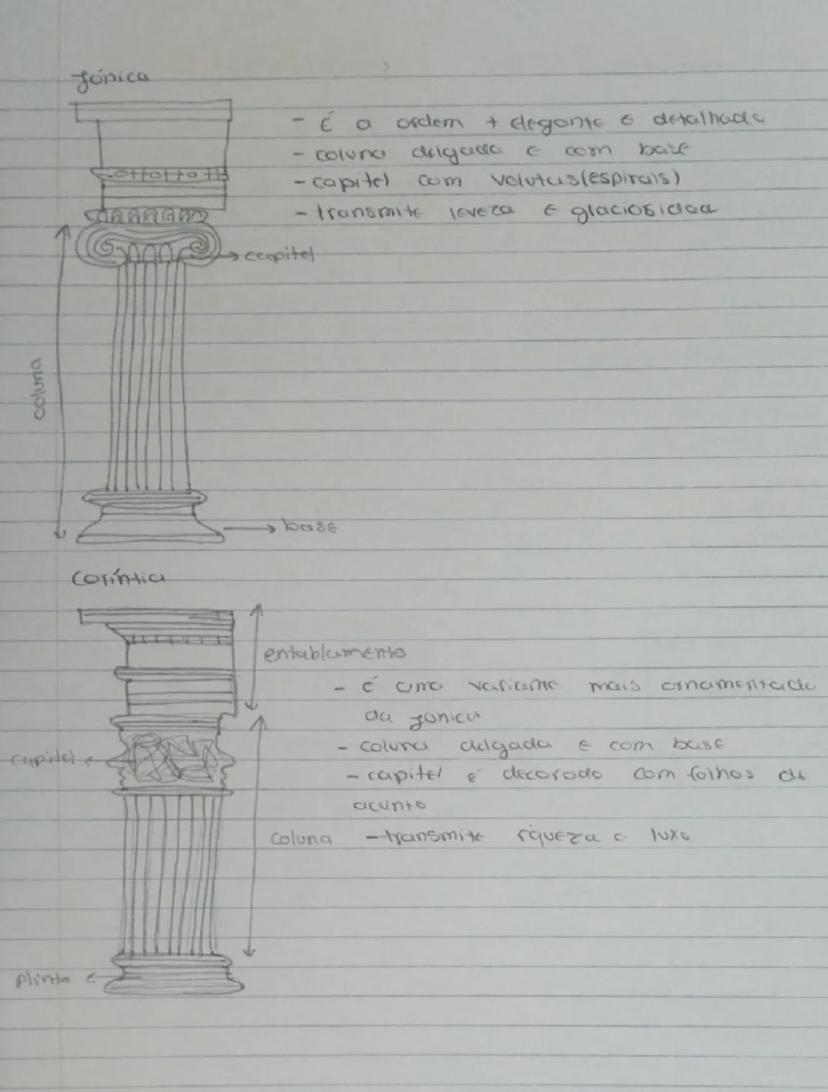 Jónica
- É a ordem + elegante e detalhada
- coluna delgada e com base
- capitel com volutas(espirais)
- transmite leveza e glaciosidaa
capitel
coluna
base
Coríntia
entablamento
- é uma variante mais ornamentada
da jonica
- coluna delgada e com base
capitel
- capitel é decorado com folhas de
acanto
coluna - transmite riqueza e luxo
plinto